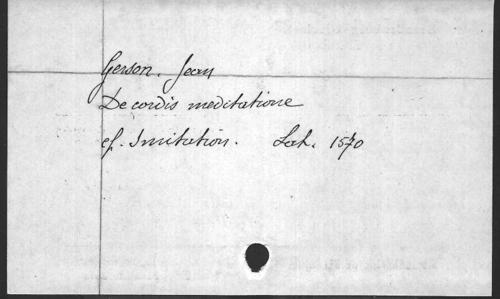 Gerson. Jean
De cordis meditatione
cf. Imitation. Lat. 1570